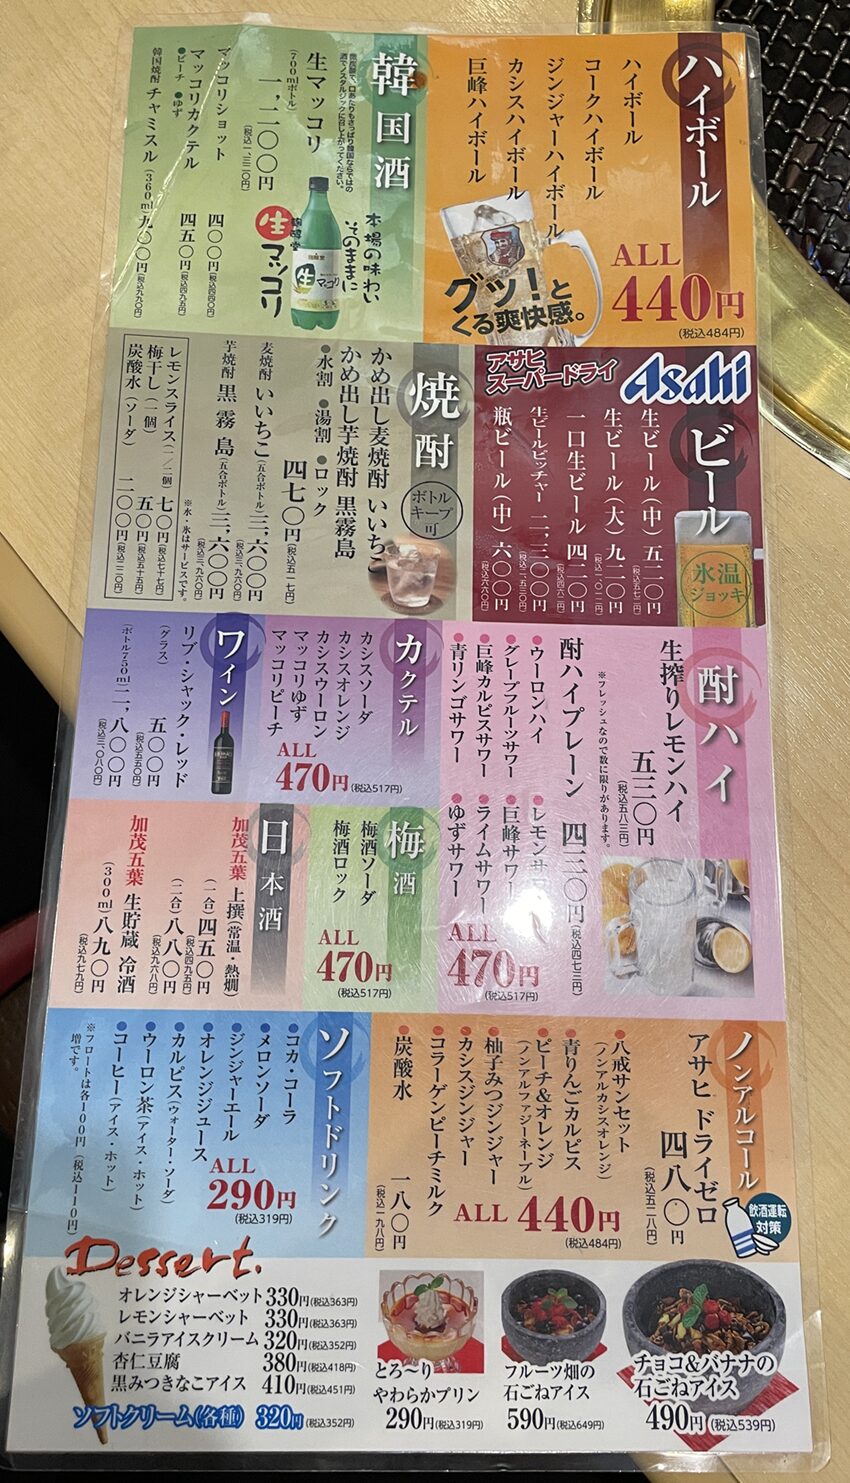 ハイボール
ハイボール
コークハイボール
ジンジャーハイボール
カシスハイボール
巨峰ハイボール
ALL
440円
(税込484円)
グッ!と
くる爽快感。
韓国酒
生マッコリ
(700mlボトル)
一,二〇〇円
(税込一,三二〇円)
本場の味わい
そのままに
生マッコリ
生
マッコリ
マッコリショット 四〇〇円(税込四四〇円)
マッコリカクテル 四五〇円(税込四九五円)
●ピーチ ●ゆず
韓国焼酎 チャミスル(360ml)九〇〇円(税込九九〇円)
アサヒ
スーパードライ
Asahi
ビール
氷温
ジョッキ
生ビール(中) 五二〇円(税込五七二円)
生ビール(大) 九二〇円(税込一,〇一二円)
一口生ビール 四二〇円(税込四六二円)
生ビールピッチャー 二,三〇〇円(税込二,五三〇円)
瓶ビール(中) 六〇〇円(税込六六〇円)
焼酎
ボトル
キープ
可
かめ出し麦焼酎 いいちこ
かめ出し芋焼酎 黒霧島
●水割 ●湯割 ●ロック
四七〇円(税込五一七円)
麦焼酎 いいちこ(五合ボトル)三,六〇〇円(税込三,九六〇円)
芋焼酎 黒霧島(五合ボトル)三,六〇〇円(税込三,九六〇円)
※水・氷はサービスです。
レモンスライス(一/二個) 七〇円(税込七十七円)
梅干し(一個) 五〇円(税込五十五円)
炭酸水(ソーダ) 二〇〇円(税込二二〇円)
酎ハイ
生搾りレモンハイ
五三〇円
(税込五八三円)
※フレッシュなので数に限りがあります。
酎ハイプレーン 四三〇円(税込四七三円)
●ウーロンハイ
●グレープフルーツサワー
●巨峰カルピスサワー
●青リンゴサワー
●レモンサ
●巨峰サワー
●ライムサワー
●ゆずサワー
ALL
470円
(税込517円)
カクテル
カシスソーダ
カシスオレンジ
カシスウーロン
マッコリゆず
マッコリピーチ
ALL
470円(税込517円)
ワイン
リブ・シャック・レッド
(グラス) 五〇〇円(税込五五〇円)
(ボトル750ml)二,八〇〇円(税込三,〇八〇円)
梅酒
梅酒ソーダ
梅酒ロック
ALL
470円
(税込517円)
日本酒
加茂五葉 上撰(常温・熱燗)
(一合)四五〇円(税込四九五円)
(二合)八八〇円(税込九六八円)
加茂五葉 生貯蔵 冷酒
(300ml)八九〇円(税込九七九円)
ノンアルコール
アサヒ ドライゼロ
四八〇円
(税込五二八円)
飲酒運転
対策
●八戒サンセット
(ノンアルカシスオレンジ)
●青りんごカルピス
●ピーチ&オレンジ
(ノンアルファジーネーブル)
●柚子みつジンジャー
●カシスジンジャー
●コラーゲンピーチミルク
ALL 440円
(税込484円)
●炭酸水 一八〇円
(税込一九八円)
ソフトドリンク
●コカ・コーラ
●メロンソーダ
●ジンジャーエール
●オレンジジュース
●カルピス(ウォーター・ソーダ)
●ウーロン茶(アイス・ホット)
●コーヒー(アイス・ホット)
ALL
290円
(税込319円)
※フロートは各100円(税込110円)
増です。
Dessert.
オレンジシャーベット 330円(税込363円)
レモンシャーベット 330円(税込363円)
バニラアイスクリーム 320円(税込352円)
杏仁豆腐 380円(税込418円)
黒みつきなこアイス 410円(税込451円)
ソフトクリーム(各種) 320円(税込352円)
とろ〜り
やわらかプリン
290円(税込319円)
フルーツ畑の
石ごねアイス
590円(税込649円)
チョコ&バナナの
石ごねアイス
490円(税込539円)